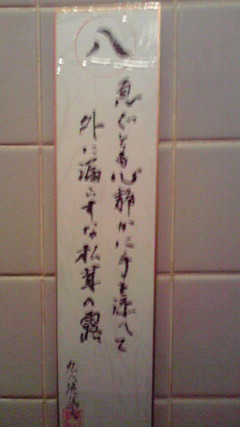 八
急ぐとも心静かに手を添へて
外に漏らすな松茸の露